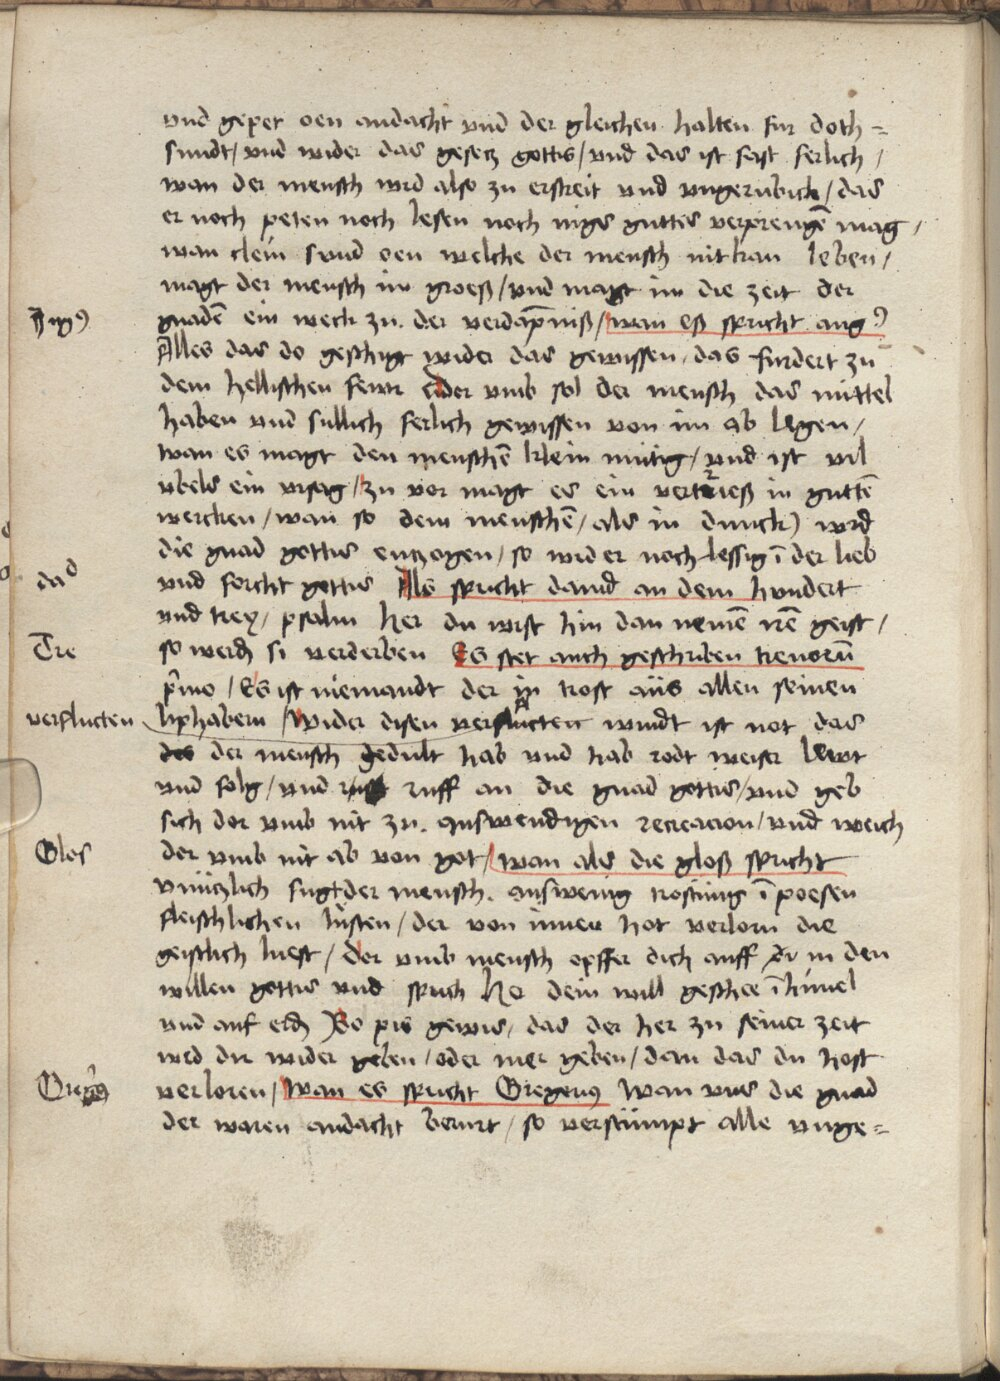 vnd gepet oen andacht vnd der gleichen halten fur doth=
sundt / vnd wider das gesecz gottis / vnd das ist fast ferlich /
wan der mensch wird also zu erstreit vnd vngerubich / das
er noch peten noch lesen noch nigs guttis verprengē mag /
wan clein sund oen welche der mensch nit kan leben /
magt der mensch im groeß / vnd magt im die zeit der
Augꝰ
gnadē ein weck zu der verdāpniß / wan eß spricht augꝰ
Alles das do geschigt wider das gewissen / das furdert zu
dem hellischen fewr dor vmb sol der mensch das mittel
haben vnd sullich ferlich gewissen von im ab legen /
wan es magt den menschē klein mutig / vnd ist vil
vbels ein vrsag / zu vor magt es ein vertrieß in guttē
wercken / wan so dem menschē / als in dunck) wird
die gnad gottis enczogen / so wird er noch lessig ī der lieb
dad
vnd forcht gottis Als spricht dauid an dem hundert
vnd trey / psalm Her du wirst hin dan nemē irē geist /
Tre
so werden si verderben Es stet auch geschriben trenorū
p̄mo / Es ist niemandt der in trost aüs allen seinen
verflucten
liphabern / Wider disen verflucten windt ist not das
der mensch gedult hab vnd hab rodt weiser lewt
vnd folg / vnd ruff an die gnad gottis / vnd geb
sich dor vmb nit zu auswendigen recreacion / vnd weich
Glos
der vmb nit ab von got / wan als die gloß spricht
vnüczlich sugt der mensch auswenig trostung ī poesen
fleischlichen lüsten / der von innen hot verlorn die
geistlich luest / dor vmb mensch opffer dich auff in den
willen gottis vnd sprich Her dein will geschee ī himel
vnd auf erden So pis gewis / das der her zu seiner zeit
wird dir wider geben / oder mer geben / dan das du host
Gregꝰ
verloren / Wan es spricht Gregerius Wan vns die gnad
der waren andacht berurt / so verstumpt alle vnge=